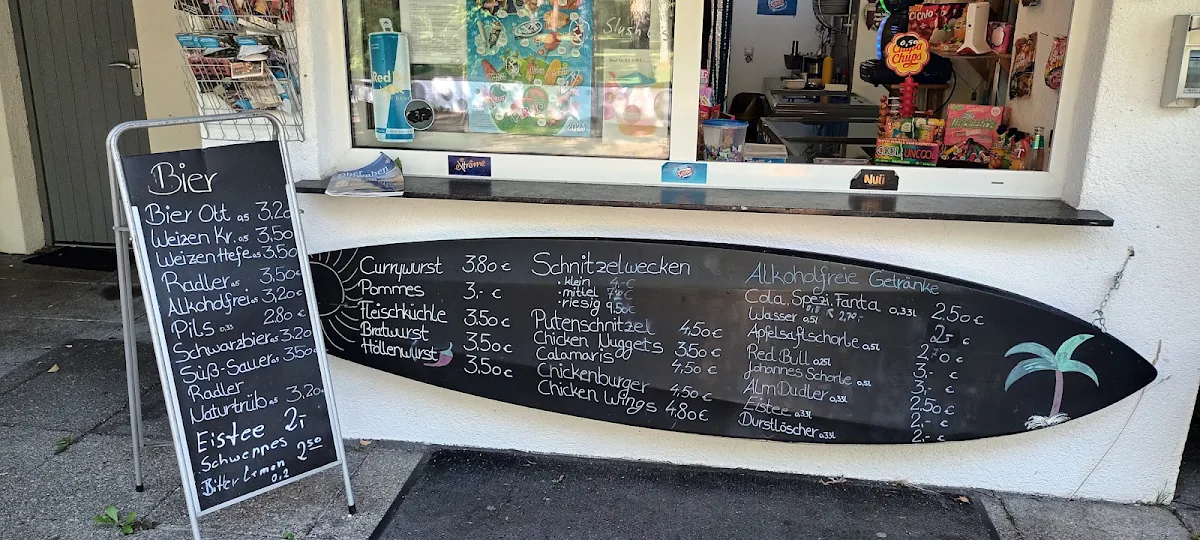 Bier
Bier Ott 0,5 3,20
Weizen Kr. 0,5 3,50
Weizen Hefe 0,5 3,50
Radler 0,5 3,50
Alkoholfrei 0,5 3,20
Pils 0,33 2,80
Schwarzbier 0,5 3,20
Süß-Sauer 0,5 3,50
Radler
Naturtrüb 0,5 3,20
Eistee 2,-
Schweppes 2,50
Bitter Lemon
0,2
Red Bull
Slush
2023
0,50
Chupa Chups
UNCOOL
Xtrême
Nuii
Currywurst 3.80 €
Pommes 3,- €
Fleischküchle 3.50 €
Bratwurst 3.50 €
Höllenwurst 3,50 €
Schnitzelwecken
• klein 4,- €
• mittel
• riesig 9.50 €
Putenschnitzel 4,50 €
Chicken Nuggets 3.50 €
Calamaris 4,50 €
Chickenburger 4,50 €
Chicken Wings 4,80 €
Alkoholfreie Getränke
Cola, Spezi, Fanta 0,33l 2,50 €
Wasser 0,5l 2,- €
Apfelsaftschorle 0,5l 2,70 €
Red Bull 0,25l 3,- €
Johannes Schorle 0,5l 3,- €
AlmDudler 0,33l 2,50 €
Eistee 0,33l 2,- €
Durstlöscher 0,33l 2,- €